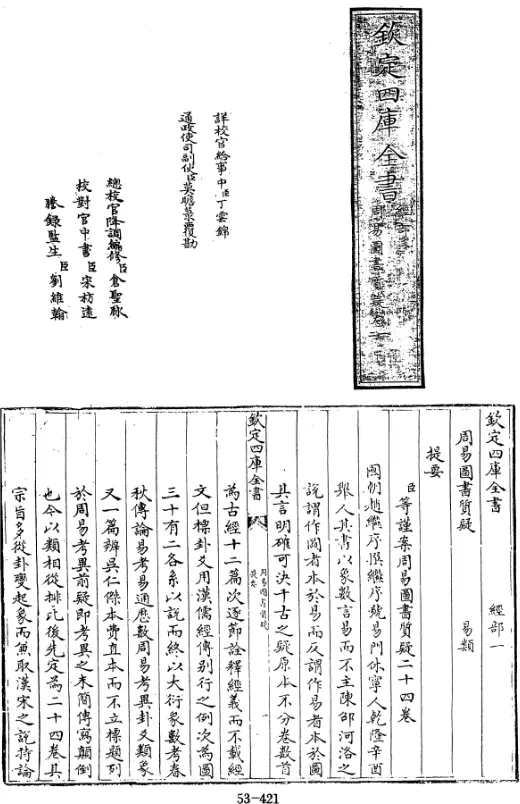 欽定四庫全書
周易圖書質疑卷一
詳校官給事中臣丁雲錦
通政使司副使臣莫瞻菉覆勘
總校官降調編修臣倉聖脉
校對官中書臣宋枋遠
謄錄監生臣劉維翰
欽定四庫全書 經部一
周易圖書質疑 易類
提要
臣等謹案周易圖書質疑二十四卷
國朝趙繼序撰繼序號易門休寧人乾隆辛酉
舉人其書以象數言易而不主陳邵河洛之
說謂作圖者本於易而反謂作易者本於圖
其言明確可決千古之疑原本不分卷數首
欽定四庫全書 周易圖書質疑 提要 一
為古經十二篇次逐節詮釋經義而不載經
文但標卦爻用漢儒經傳别行之例次為圖
三十有二各系以說而終以大衍象數考春
秋傳論易考易通歷數周易考異卦爻類象
又一篇辨吳仁傑本費直本而不立標題列
於周易考異前疑即考異之末簡傳寫顛倒
也今以類相從排比後先定為二十四卷其
宗旨多從卦變起象而兼取漢宋之說持論
53-421